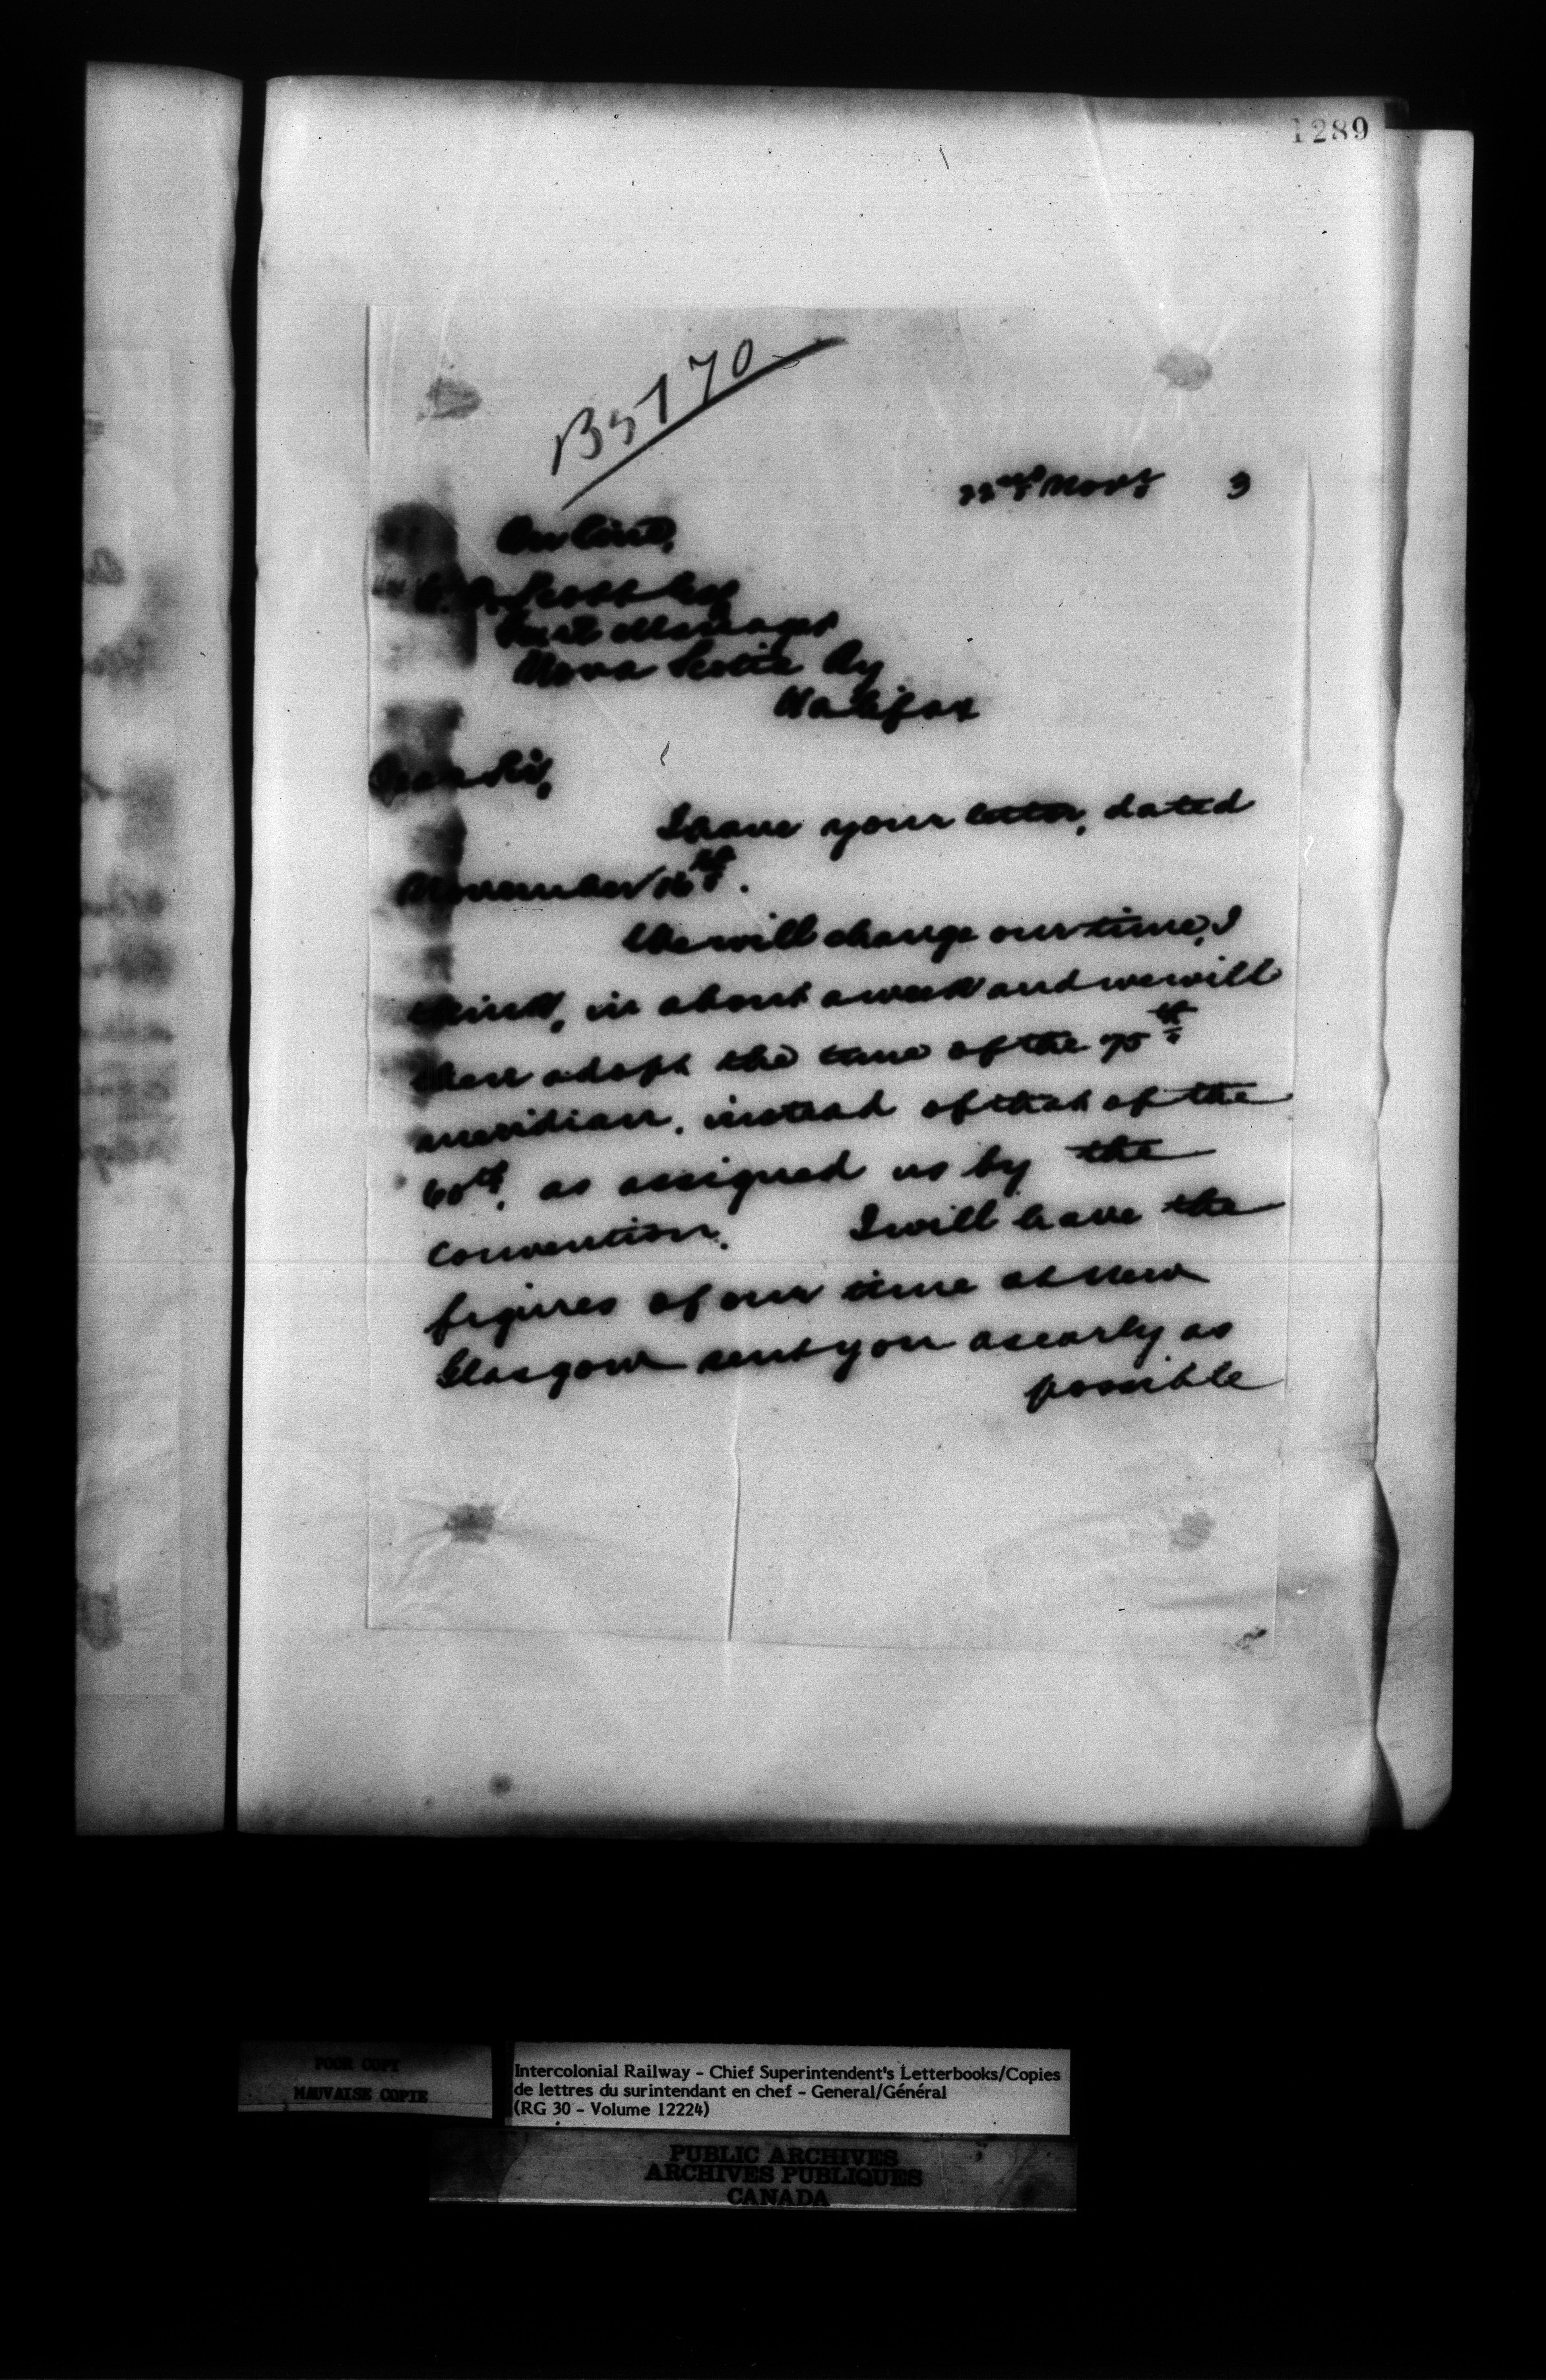 1289
B5770
22nd Novr 3
On line,
C. A. Scott Esq
Genl Manager
Nova Scotia Ry
Halifax
Dear Sir,
I have your letter, dated
November 16th.
We will change our time, I
think, in about a week and we will
then adopt the time of the 75th
meridian, instead of that of the
60th, as assigned us by the
convention. I will have the
figures of our time at New
Glasgow sent you as early as
possible
POOR COPY
MAUVAISE COPIE
Intercolonial Railway - Chief Superintendent's Letterbooks/Copies
de lettres du surintendant en chef - General/Général
(RG 30 - Volume 12224)
PUBLIC ARCHIVES
ARCHIVES PUBLIQUES
CANADA